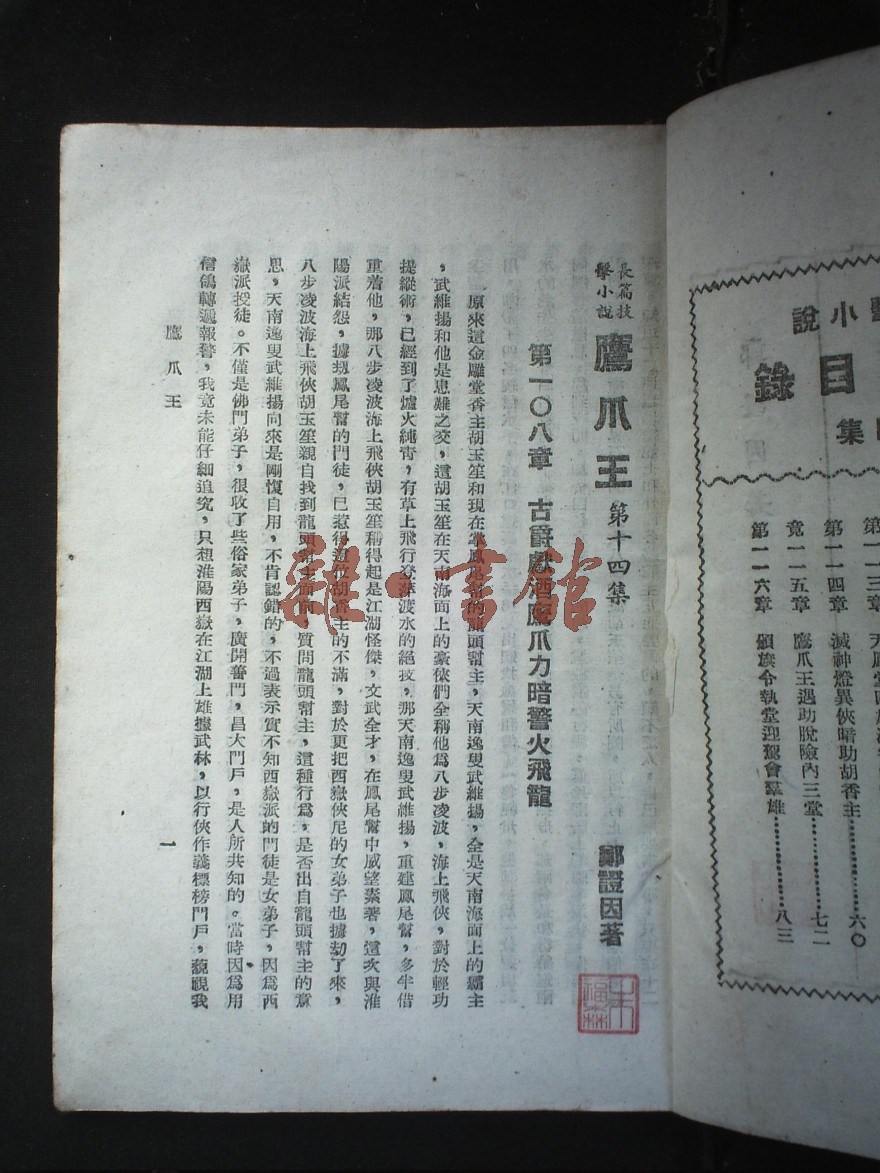 說小
目錄
集
第一一三章
第一一四章 滅神燈異俠暗助胡香主………六〇
竟一一五章 鷹爪王遇助脫險內三堂………七二
第一一六章 頒旗令執堂迎駕會羣雄………八三
長篇技擊小說 鷹爪王 第十四集
鄭證因著
第一〇八章 古爵獻酒鷹爪力暗警火飛龍
原來這金雕堂香主胡玉笙和現在掌鳳尾幫的龍頭幫主,天南逸叟武維揚,全是天南海面上的霸主
,武維揚和他是患難之交,這胡玉笙在天南海面上的豪俠們全稱他爲八步凌波,海上飛俠,對於輕功
提縱術,已經到了爐火純靑,有草上飛行登萍渡水的絕技,那天南逸叟武維揚,重建鳳尾幫,多半借
重着他,那八步凌波海上飛俠胡玉笙稱得起是江湖怪傑,文武全才,在鳳尾幫中威望素著,這次與淮
陽派結怨,擄刼鳳尾幫的門徒,已惹得這位胡香主的不滿,對於更把西嶽俠尼的女弟子也擄刼了來,
八步凌波海上飛俠胡玉笙親自找到龍頭幫主面前,質問龍頭幫主,這種行爲,是否出自龍頭幫主的意
思,天南逸叟武維揚向來是剛愎自用,不肯認錯的,不過表示實不知西嶽派的門徒是女弟子,因爲西
嶽派授徒。不僅是佛門弟子,很收了些俗家弟子,廣開善門,昌大門戶,是人所共知的。當時因爲用
信鴿轉遞報警,我竟未能仔細追究,只想淮陽西嶽在江湖上雄據武林,以行俠作義標榜門戶,藐視我
鷹爪王
一
雜·書館